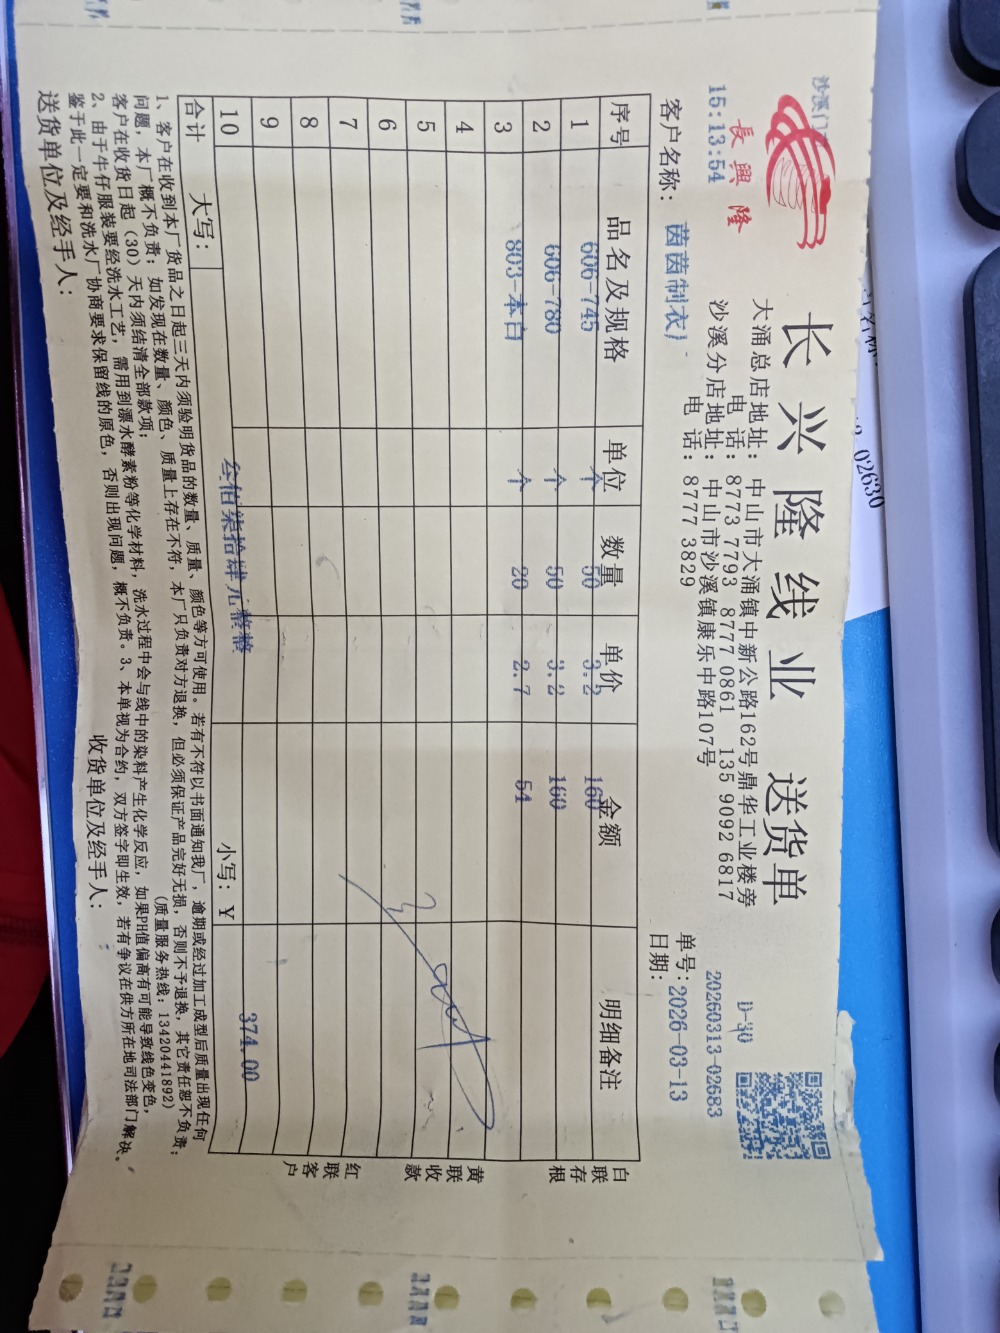 长兴隆线业 送货单
長興隆
沙溪门
15:13:54
大涌总店地址：中山市大涌镇中新公路162号鼎华工业楼旁
电 话：8773 7793 8777 0861 135 9092 6817
沙溪分店地址：中山市沙溪镇康乐中路107号
电 话：8777 3829
D-30
20260313-02683
单号：
日期：2026-03-13
客户名称：茵茵制衣厂
序号 品名及规格 单位 数量 单价 金额 明细备注
1 606-745 个 50 3.2 160
2 606-780 个 50 3.2 160
3 803-本白 个 20 2.7 54
4
5
6
7
8
9
10
合计 大写：叁佰柒拾肆元整整 小写：Y 374.00
白联存根
黄联收款
红联客户
(质量服务热线：13420441892)
1、客户在收到本厂货品之日起三天内须验明货品的数量、质量、颜色等方可使用。若有不符以书面通知我厂，逾期或经过加工成型后质量出现任何
问题，本厂概不负责；如发现在数量、颜色、质量上存在不符，本厂只负责对方退换，但必须保证产品完好无损，否则不予退换，其它责任恕不负责；
客户在收货日起（30）天内须结清全部款项；
2、由于牛仔服装要经洗水工艺，需用到漂水酵素粉等化学材料，洗水过程中会与线中的染料产生化学反应，如果PH值偏高有可能导致线色变色，
鉴于此一定要和洗水厂协商要求保留线的原色，否则出现问题，概不负责。3、本单视为合约，双方签字即生效，若有争议在供方所在地司法部门解决。
送货单位及经手人：
收货单位及经手人：
02630